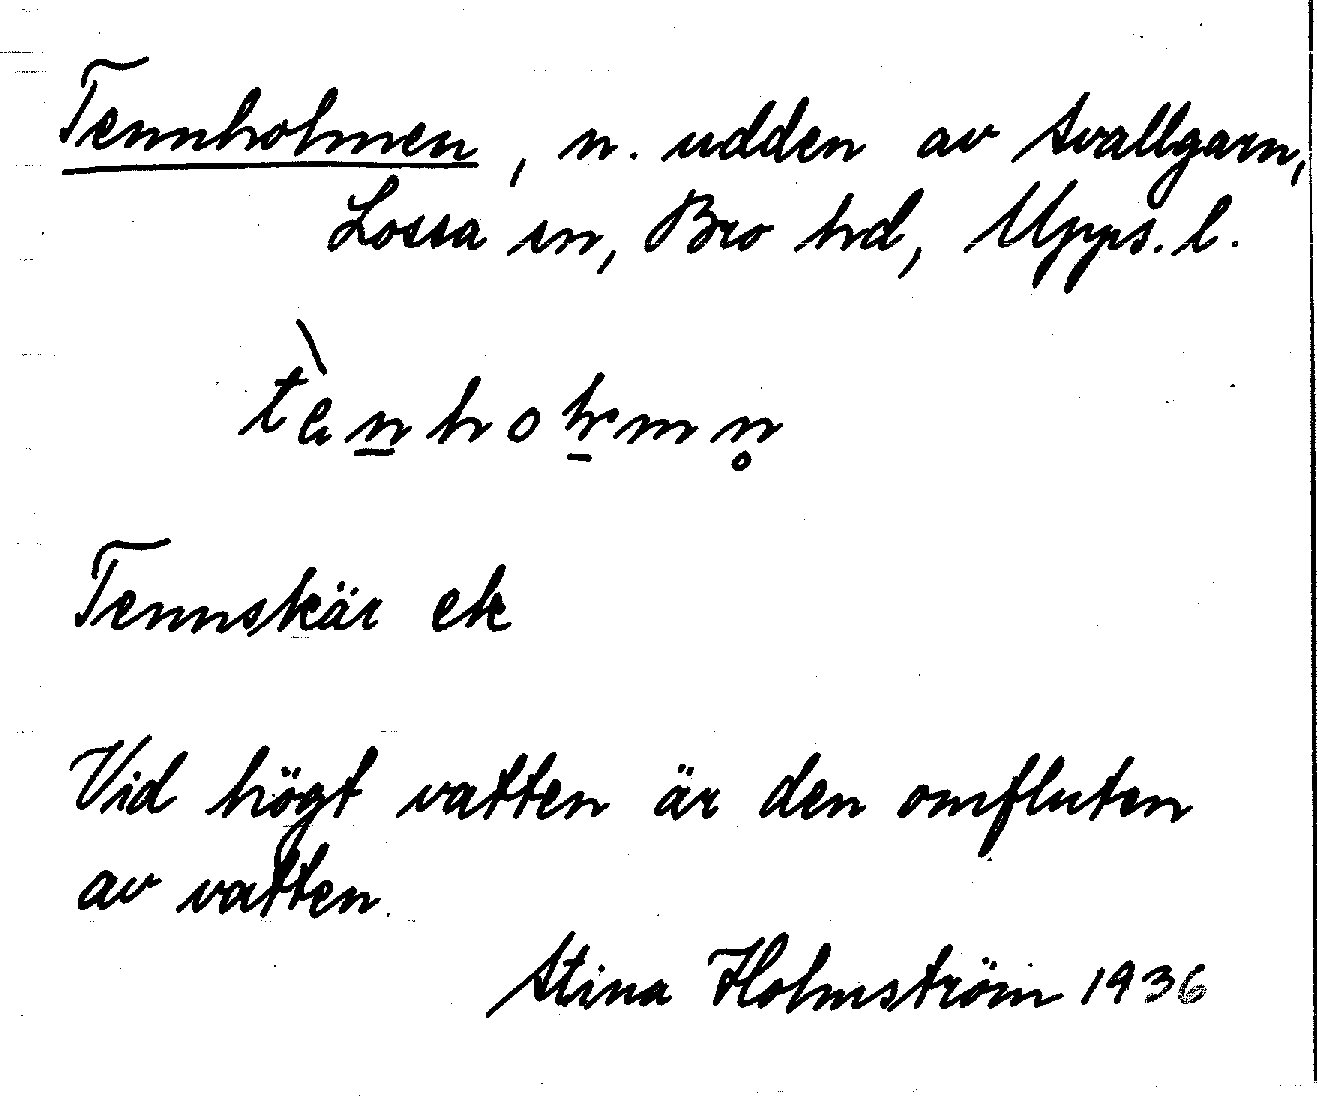 Tennholmen, n. udden av Svallgarn,
Lossa sn, Bro hd, Upps. l.
Tennskär ek
Vid högt vatten är den omfluten
av vatten.
Stina Holmström 1936